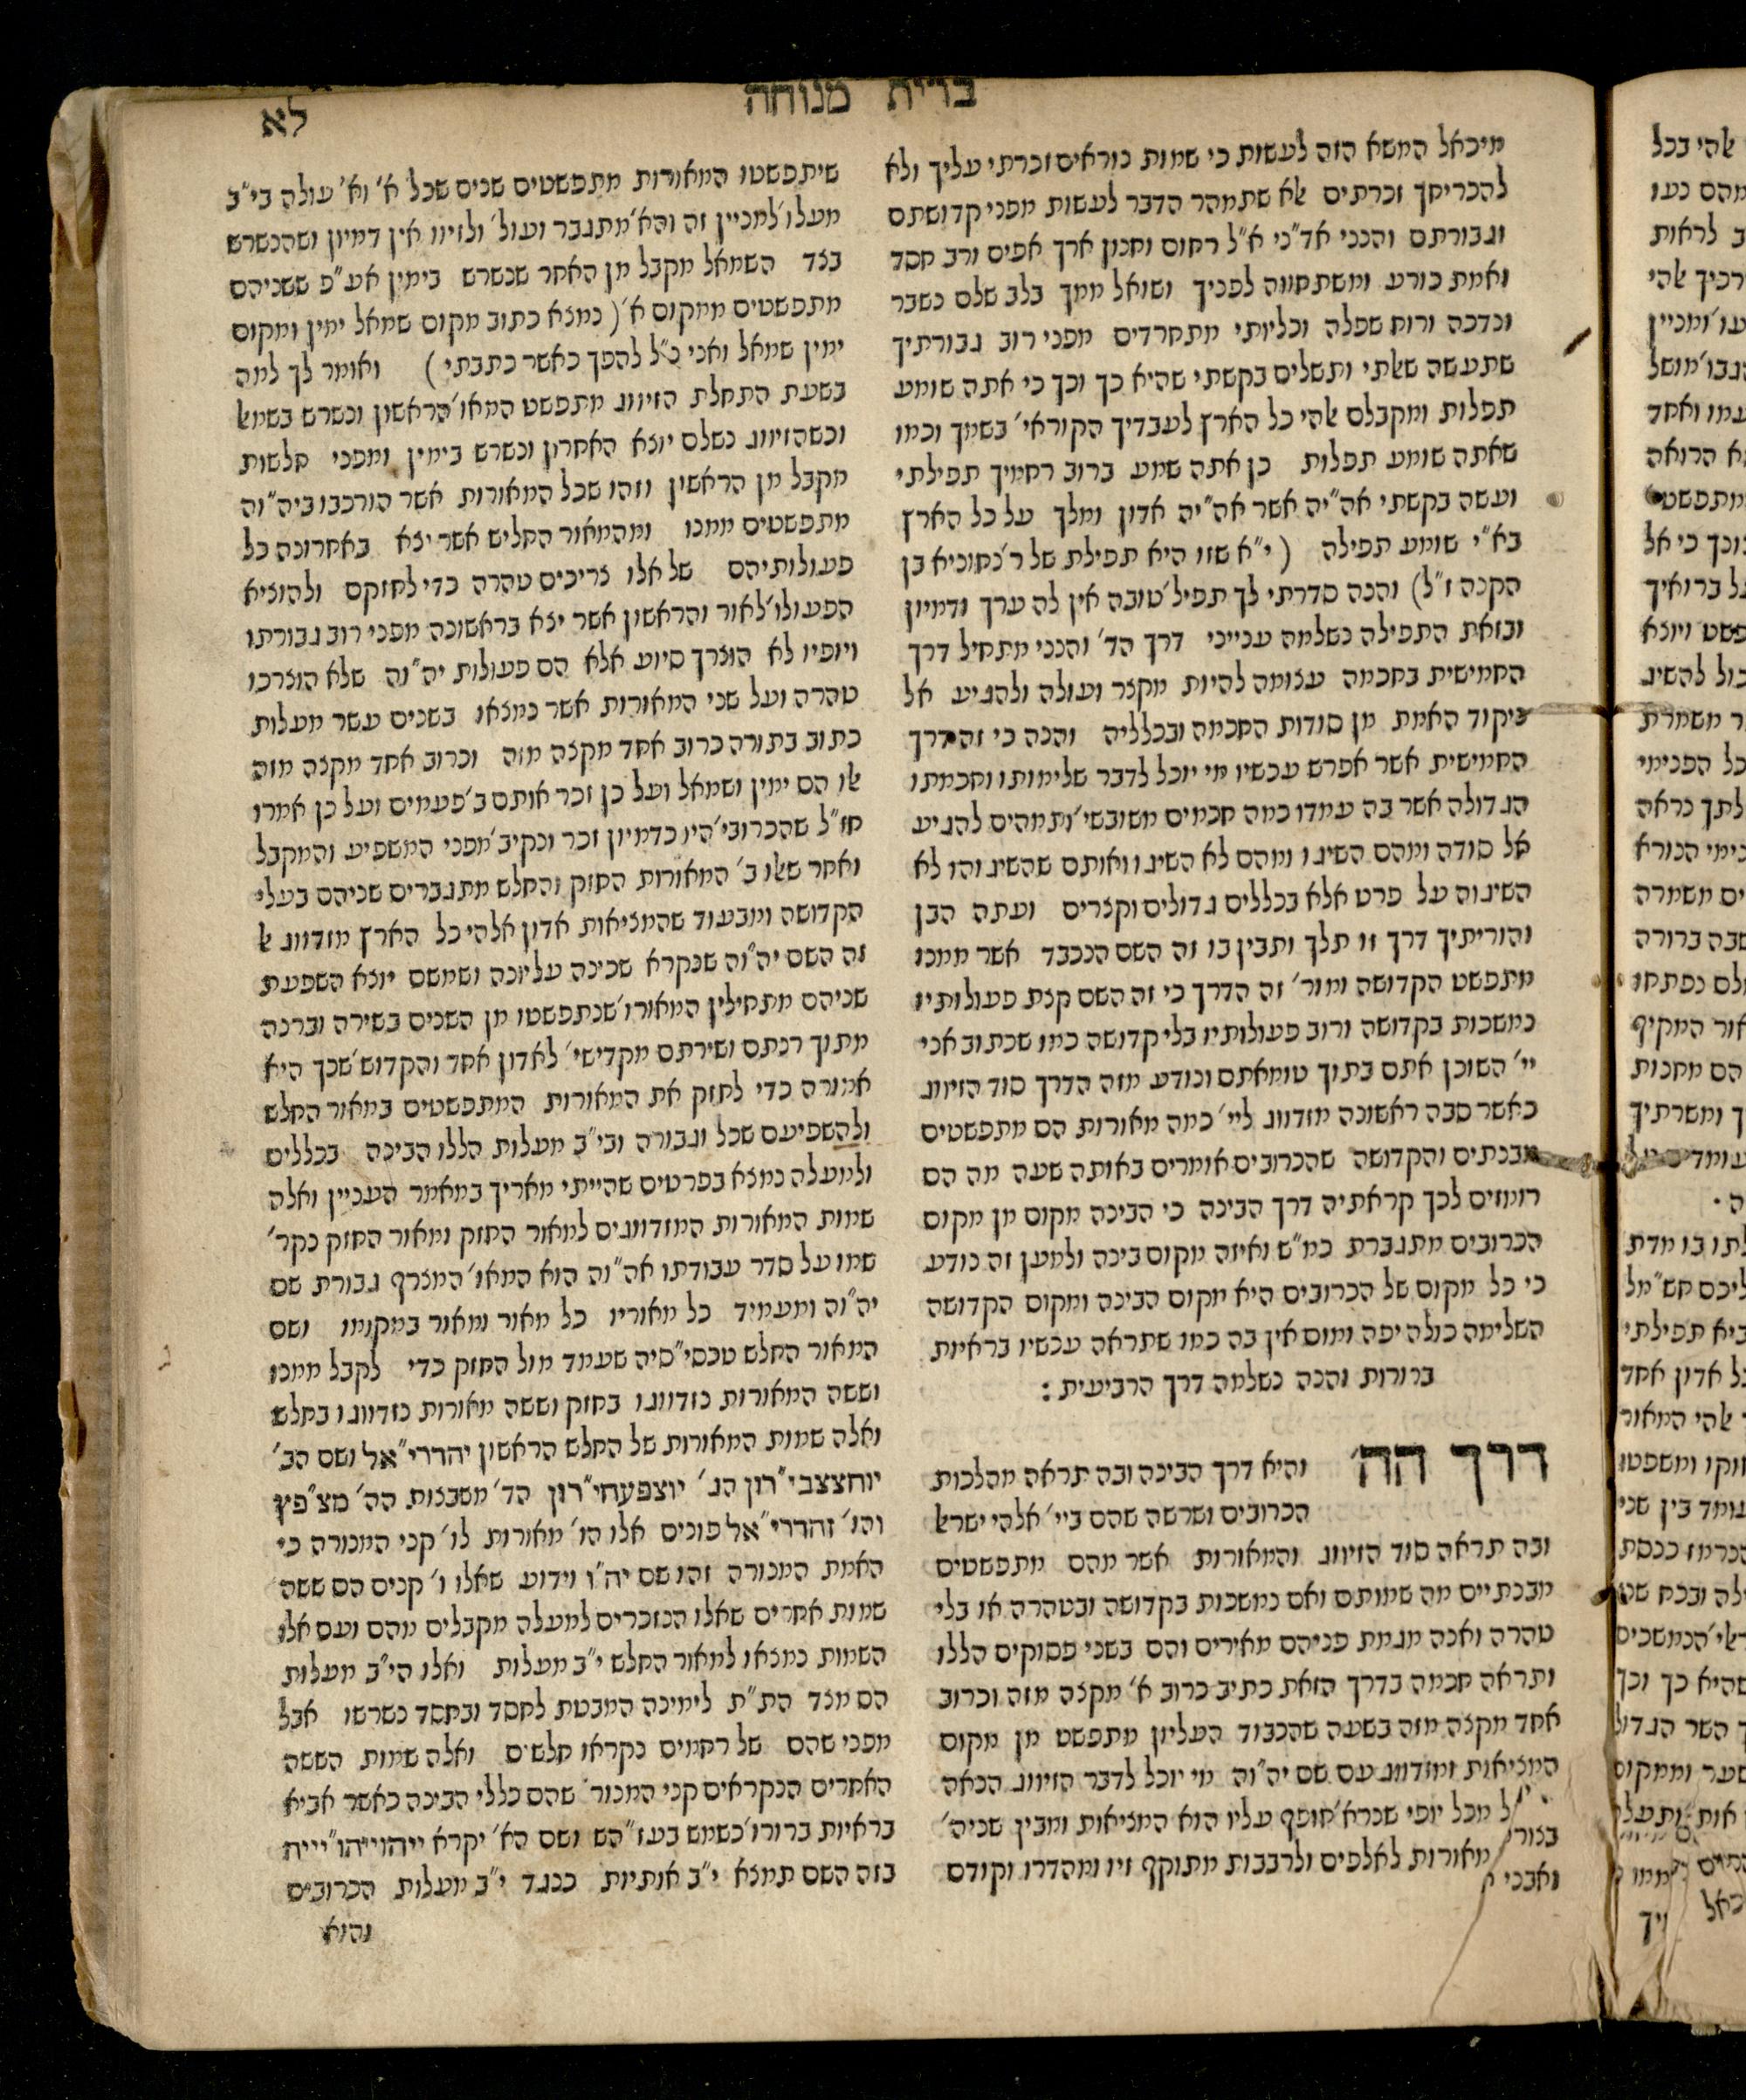 ברית מנוחה
לא
מיכאל המשא הזה לעשות כי שמות נוראים זכרתי עליך ולא
להכריחך זכרתים אלא שתמהר הדבר לעשות מפני קדושתם
וגבורתם והנני אד"ני א"ל רחום וחנון ארך אפים ורב חסד
ואמת כורע ומשתחוה לפניך ושואל ממך בלב שלם נשבר
ונדכה ורוח שפלה וכליותי מתחרדים מפני רוב גבורתיך
שתעשה שאלתי ותשלים בקשתי שהיא כך וכך כי אתה שומע
תפלות ומקבלם אלהי כל הארץ לעבדיך הקוראי' בשמך וכמו
שאתה שומע תפלות כן אתה שמע ברוב רחמיך תפילתי
ועשה בקשתי אה"יה אשר אה"יה אדון ומלך על כל הארץ
בא"י שומע תפילה ( י"א שזו היא תפילת של ר' נחוניא בן
הקנה ז"ל) והנה סדרתי לך תפיל' טובה אין לה ערך ודמיון
ובזאת התפילה נשלמה ענייני דרך הד' והנני מתחיל דרך
החמישית בחכמה עצומה להיות מקצר ועולה ולהגיע אל
ניקוד האמת מן סודות החכמה ובכלליה והנה כי זה הדרך
החמישית אשר אפרש עכשיו מי יוכל לדבר שלימותו וחכמתו
הגדולה אשר בה עמדו כמה חכמים משובשי' ותמהים להגיע
אל סודה ומהם השיגו ומהם לא השיגו ואותם שהשיגוהו לא
השיגוה על פרט אלא בכללים גדולים וקצרים ועתה הבן
והוריתיך דרך זו תלך ותבין בו זה השם הנכבד אשר ממנו
מתפשט הקדושה ומור' זה הדרך כי זה השם קצת פעולותיו
נמשכות בקדושה ורוב פעולותיו בלי קדושה כמו שכתוב אני
יי' השוכן אתם בתוך טומאתם ונודע מזה הדרך סוד הזיווג
כאשר סבה ראשונה מזדווג ליי' כמה מאורות הם מתפשטים
מבנתים והקדושה שהכרובים אומרים באותה שעה מה הם
רומזים לכך קראתיה דרך הבינה כי הבינה מקום מן מקום
הכרובים מתגברת כמ"ש ואיזה מקום בינה ולמען זה נודע
כי כל מקום של הכרובים היא מקום הבינה ומקום הקדושה
השלימה כולה יפה ומום אין בה כמו שתראה עכשיו בראיות
ברורות והנה נשלמה דרך הרביעית :
דרך הה' והיא דרך הבינה ובה תראה מהלכות
הכרובים ושרשה שהם ביי' אלהי ישראל
ובה תראה סוד הזיווג והמאורות אשר מהם מתפשטים
מבנתיים מה שמותם ואם נמשכות בקדושה ובטהרה או בלי
טהרה ואנה מגמת פניהם מאירים והם בשני פסוקים הללו
ותראה חכמה בדרך הזאת כתיב כרוב א' מקצה מזה וכרוב
אחד מקצה מזה בשעה שהכבוד העליון מתפשט מן מקום
המציאות ומזדווג עם שם יה"וה מי יוכל לדבר הזיווג הנאה
מכל יופי שנברא' חופף עליו הוא המציאות ומבין שניה'
מאורות לאלפים ולרבבות מתוקף זיו ומהדרו וקודם
שיתפשטו המאורות מתפשטים שנים שכל א' וא' עולה בי"ב
מעלו' למניין זה והא' מתגבר ועול' ולזיוו אין דמיון ושהנשרש
בצד השמאל מקבל מן האחר שנשרש בימין אע"פ ששניהם
מתפשטים ממקום א' ( נמצא כתוב מקום שמאל ימין ומקום
ימין שמאל ואני נ"ל להפך כאשר כתבתי ) ואומר לך למה
בשעת התחלת הזיווג מתפשט המאו' הראשון ונשרש בשמאל
וכשהזיווג נשלם יוצא האחרון ונשרש בימין ומפני חלשות
מקבל מן הראשון וזהו שכל המאורות אשר הורכבו ביה"וה
מתפשטים ממנו ומהמאור החליש אשר יצא באחרונה כל
פעולותיהם של אלו צריכים טהרה כדי לחזקם ולהוציא
הפעולו' לאור והראשון אשר יצא בראשונה מפני רוב גבורתו
ויופיו לא הוצרך סיוע אלא הם פעולות יה"וה שלא הוצרכו
טהרה ועל שני המאורות אשר נמצאו בשנים עשר מעלות
כתוב בתורה כרוב אחד מקצה מזה וכרוב אחד מקצה מזה
אלו הם ימין ושמאל ועל כן זכר אותם ב' פעמים ועל כן אמרו
חז"ל שהכרובי' היו כדמיון זכר ונקיב' מפני המשפיע והמקבל
ואחר שאלו ב' המאורות החזק והחלש מתגברים שניהם בעלי
הקדושה ומבעוד שהמציאות אדון אלהי כל הארץ מזדווג אל
זה השם יה"וה שנקרא שכינה עליונה ושמשם יוצא השפעת
שניהם מתחילין המאורו' שנתפשטו מן השנים בשירה וברנה
מתוך רנתם ושירתם מקדישי' לאדון אחד והקדוש' שכך היא
אמורה כדי לחזק את המאורות המתפשטים במאור החלש
ולהשפיעם שכל וגבורה ובי"ב מעלות הללו הבינה בכללים
ולמעלה נמצא בפרטים שהייתי מאריך במאמר העניין ואלה
שמות המאורות המזדווגים למאור החזק ומאור החזק נקר'
שמו על סדר עבודתו אה"וה הוא המאו' המצרף גבורת שם
יה"וה ומעמיד כל מאוריו כל מאור ומאור במקומו ושם
המאור החלש טנסי"סיה שעמד מול החזק כדי לקבל ממנו
וששה המאורות נזדווגו בחזק וששה מאורות נזדווגו בחלש
ואלה שמות המאורות של החלש הראשון יהדרי"אל ושם הב'
יוחצצבי"רון הג' יוצפעחי"רון הד' משבצות הה' מצ"פץ
והו' זהדרי"אל פונים אלו הו' מאורות לו' קני המנורה כי
האמת המנורה זהו שם יה"ו וידוע שאלו ו' קנים הם ששה
שמות אחרים שאלו הנזכרים למעלה מקבלים מהם ועם אלו
השמות נמצאו למאור החלש י"ב מעלות ואלו הי"ב מעלות
הם מצד הת"ת לימינה המבטת לחסד ובחסד נשרשו אבל
מפני שהם של רחמים נקראו חלשים ואלה שמות הששה
האחרים הנקראים קני המנור' שהם כללי הבינה כאשר אביא
בראיות ברורו' כשמש בעז"הש ושם הא' יקרא
בזה השם תמצא י"ב אותיות כנגד י"ב מעלות הכרובים
והוא